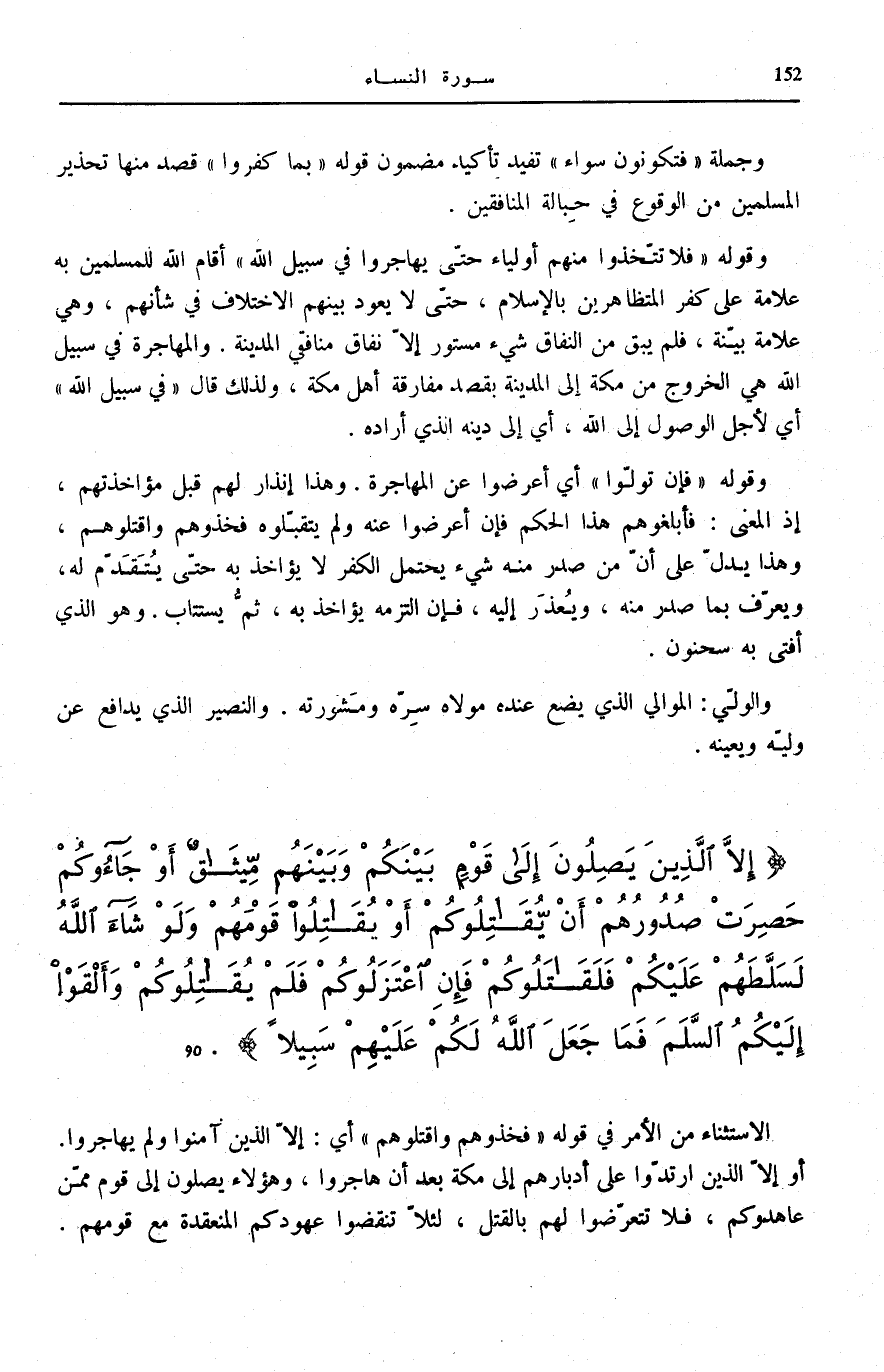 152
سورة النساء
وجملة « فتكونون سواء » تفيد تأكيد مضمون قوله « بما كفروا » قصد منها تحذير
المسلمين من الوقوع في حبالة المنافقين .
وقوله « فلا تتّخذوا منهم أولياء حتّى يهاجروا في سبيل الله » أقام الله للمسلمين به
علامة على كفر المتظاهرين بالإسلام ، حتّى لا يعود بينهم الاختلاف في شأنهم ، وهي
علامة بيّنة ، فلم يبق من النفاق شيء مستور إلاّ نفاق منافقي المدينة . والمهاجرة في سبيل
الله هي الخروج من مكة إلى المدينة بقصد مفارقة أهل مكة ، ولذلك قال « في سبيل الله »
أي لأجل الوصول إلى الله ، أي إلى دينه الذي أراده .
وقوله « فإن تولّوا » أي أعرضوا عن المهاجرة . وهذا إنذار لهم قبل مؤاخذتهم ،
إذ المعنى : فأبلغوهم هذا الحكم فإن أعرضوا عنه ولم يتقبّلوه فخذوهم واقتلوهم ،
وهذا يدلّ على أنّ من صدر منه شيء يحتمل الكفر لا يؤاخذ به حتّى يُتَقَدّم له،
ويعرّف بما صدر منه ، ويُعذَر إليه ، فإن التزمه يؤاخذ به ، ثمّ يستتاب . وهو الذي
أفتى به سحنون .
والوليّ : الموالي الذي يضع عنده مولاه سرّه ومَشُورته . والنصير الذي يدافع عن
وليّه ويعينه .
﴿ إِلاَّ ٱلَّذِينَ يَصِلُونَ إِلَىٰ قَوْمٍ بَيْنَكُمْ وَبَيْنَهُم مِّيثَـٰقٌ أَوْ جَآءُوكُمْ
حَصِرَتْ صُدُورُهُمْ أَنْ يُّقَـٰتِلُوكُمْ أَوْ يُقَـٰتِلُواْ قَوْمَهُمْ وَلَوْ شَآءَ ٱللَّهُ
لَسَلَّطَهُمْ عَلَيْكُمْ فَلَقَـٰتَلُوكُمْ فَإِنِ ٱعْتَزَلُوكُمْ فَلَمْ يُقَـٰتِلُوكُمْ وَأَلْقَوْاْ
إِلَيْكُمُ ٱلسَّلَمَ فَمَا جَعَلَ ٱللَّهُ لَكُمْ عَلَيْهِمْ سَبِيلاً ﴾ . 90
الاستثناء من الأمر في قوله « فخذوهم واقتلوهم » أي : إلاّ الذين آمنوا ولم يهاجروا.
أو إلاّ الذين ارتدّوا على أدبارهم إلى مكة بعد أن هاجروا ، وهؤلاء يصلون إلى قوم ممّن
عاهدوكم ، فلا تتعرّضوا لهم بالقتل ، لئلاّ تنقضوا عهودكم المنعقدة مع قومهم .